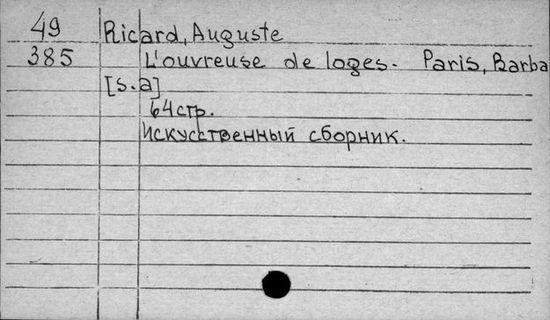 49 Ricard, Auguste
385 L'ouvreuse de loges. Paris, Barba
[s.a]
64стр.
Искусственный сборник.